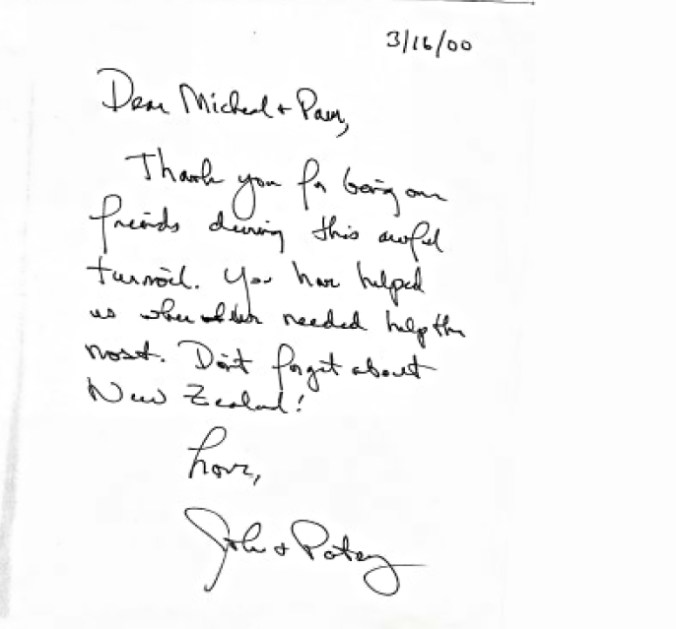 3/16/00
Dear Micheal + Pam,
Thank you for being our
friends during this awful
turmoil. You have helped
us when needed help the
most. Don't forget about
New Zealand!
Love,
John + Patsy